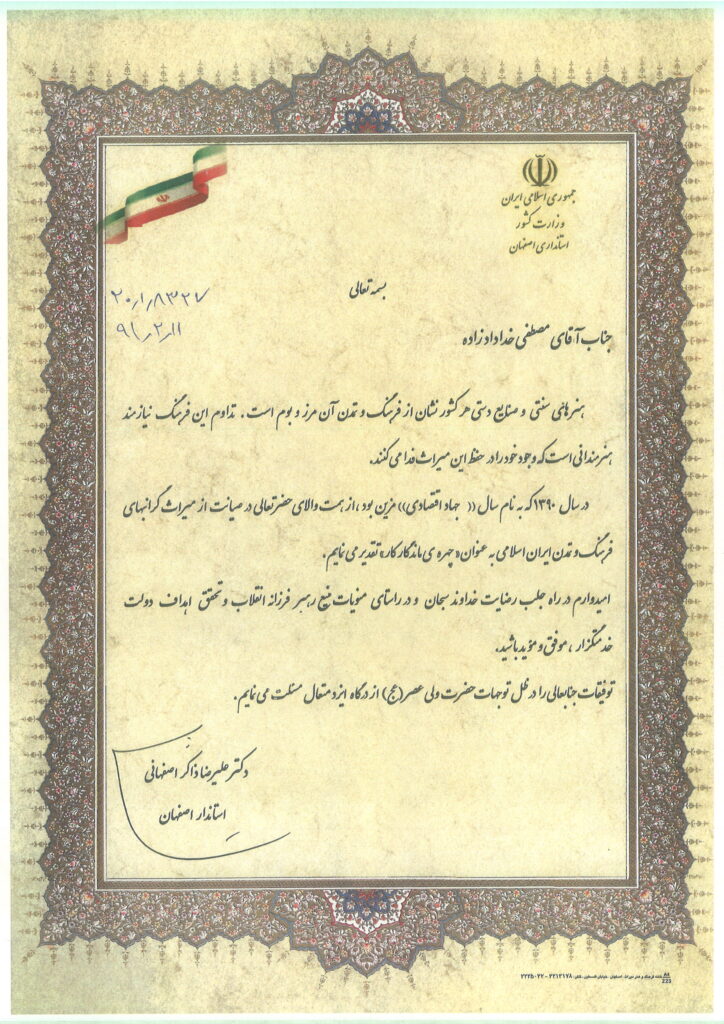 جمهوری اسلامی ایران
وزارت کشور
استانداری اصفهان
بسمه تعالی
۲۰۱٫۸۳۲۷
۹۱٫۲٫۱۱
جناب آقای مصطفی خداداد زاده
هنرهای سنتی و صنایع دستی هر کشور نشان از فرهنگ و تمدن آن مرز و بوم است . تداوم این فرهنگ نیازمند
هنرمندانی است که وجود خود را در حفظ این میراث فدا می کنند.
در سال ۱۳۹۰ که به نام سال (( جهاد اقتصادی)) مزین بود ، از همت والای حضرتعالی در صیانت از میراث گرانبهای
فرهنگ و تمدن ایران اسلامی به عنوان « چهره ی ماندگار کار» تقدیر می نمایم.
امیدوارم در راه جلب رضایت خداوند سبحان و در راستای منویات منیع رهبر فرزانه انقلاب و تحقق اهداف دولت
خدمتگزار ، موفق و مؤید باشید.
توفیقات جنابعالی را در ظل توجهات حضرت ولی عصر (عج) از درگاه ایزد متعال مسئلت می نمایم.
دکتر علیرضا ذاکر اصفهانی
استاندار اصفهان
A4
223